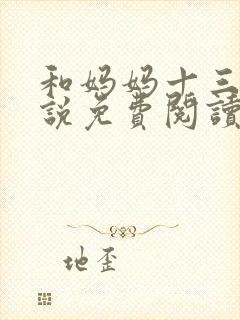 和妈妈十三
說免費閱讀
地歪